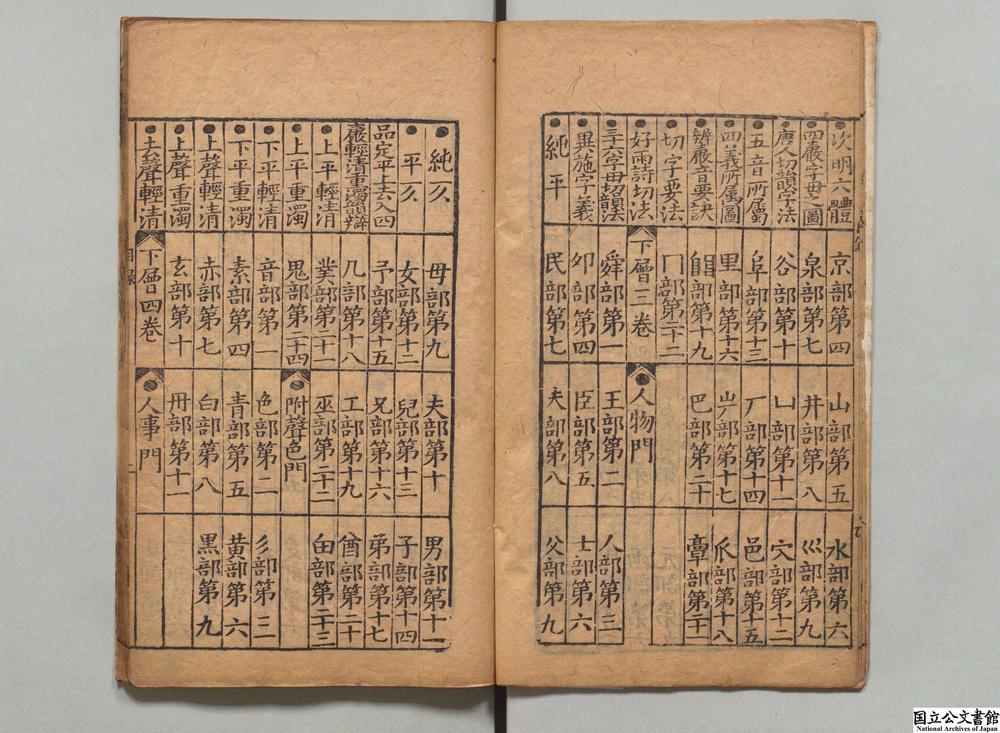 次明六體 京部第四 山部第五 水部第六
四聲字母之圖 泉部第七 井部第八 巛部第九
唐人切韻字法 谷部第十 凵部第十一 穴部第十二
五音所屬 阜部第十三 厂部第十四 邑部第十五
四義所屬圖 里部第十六 屵部第十七 𠂢部第十八
辨聲音要訣 部第十九 巴部第二十 部第二十一
切字要法 冂部第二十二
好雨詩切法 下層三卷 人物門
三十六字母切韻法 舜部第一 王部第二 人部第三
異施字義 卯部第四 臣部第五 士部第六
純平 民部第七 夫部第八 父部第九
純入 母部第九 夫部第十 男部第十一
平入 女部第十二 兒部第十三 子部第十四
品定平上去入四 予部第十五 兄部第十六 弟部第十七
聲輕清重濁韻辯 几部第十八 工部第十九 酋部第二十
上平輕清 部第二十一 巫部第二十二 由部第二十三
上平重濁 鬼部第二十四 附聲色門
下平輕清 音部第一 色部第二 彡部第三
下平重濁 素部第四 青部第五 黃部第六
上聲輕清 赤部第七 白部第八 黑部第九
上聲重濁 玄部第十 丹部第十一
去聲輕清 下層四卷 人事門
目錄
二
国立公文書館
National Archives of Japan